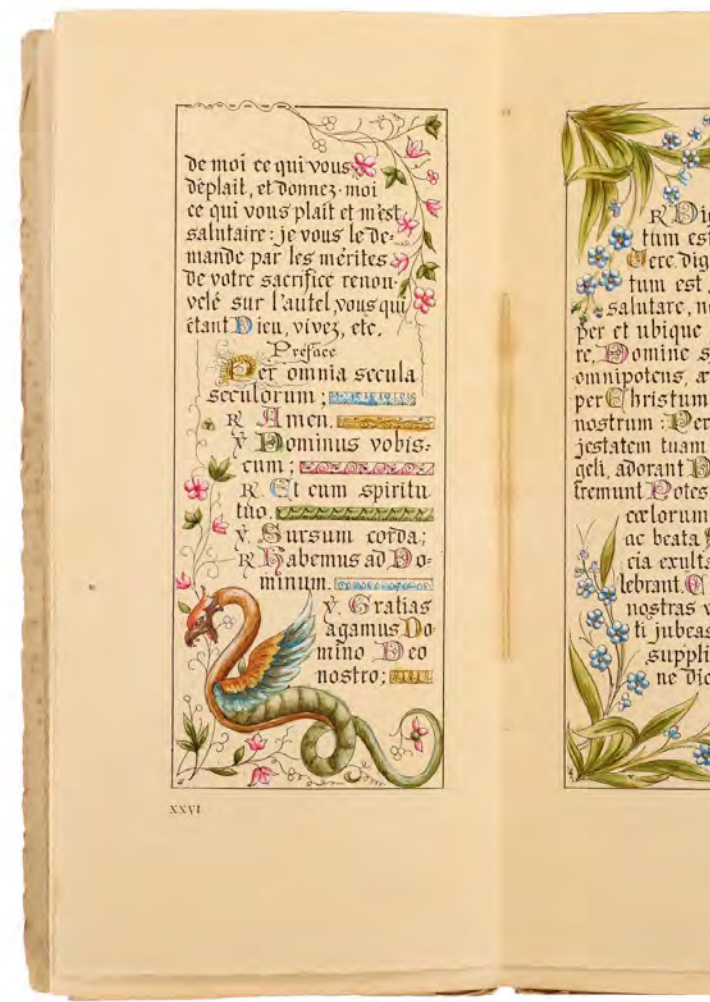 de moi ce qui vous
déplait, et donnez-moi
ce qui vous plait et m'est
salutaire : je vous le de=
mande par les mérites
de votre sacrifice renou-
velé sur l'autel, vous qui
étant Dieu, vivez, etc.
Préface
Per omnia secula
seculorum ;
℟ Amen.
℣ Dominus vobis=
cum ;
℟. Et cum spiritu
tuo.
℣. Sursum corda ;
℟ Habemus ad Do=
minum.
℣. Gratias
agamus Do
mino Deo
nostro ;
XXVI
℟ Dig
tum est
Vere dig
tum est,
salutare, n
per et ubique
re, Domine s
omnipotens, æ
per Christum
nostrum : Per
jestatem tuam
geli, adorant D
tremunt Potes
cœlorum
ac beata
cia exulta
lebrant.
nostras v
ti jubeas
suppli
ne dic